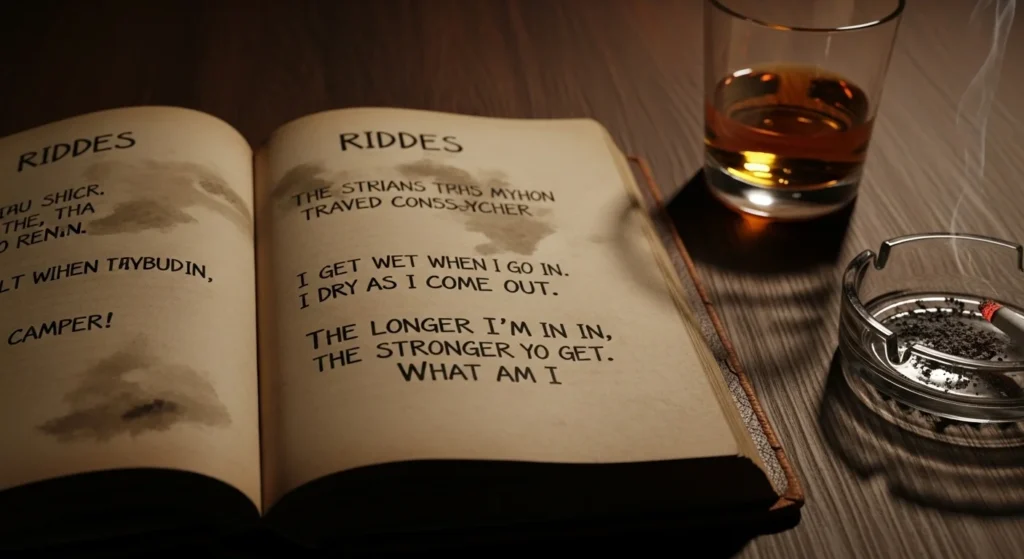 RIDDES
IAU SHICR.
THE, THA
O RENIN.
LT WIHEN TRYBUDIN,
CAMPER!
RIDDES
THE STRIANS TPHS MYHON
TRAVED CONSS-YCHER
I GET WET WHEN I GO IN.
I DRY AS I COME OUT.
THE LONGER I'M IN IN,
THE STRONGER YO GET.
WHAT AM I